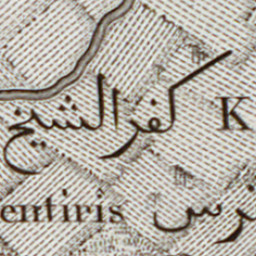 كفر الشيخ K
entiris ترس